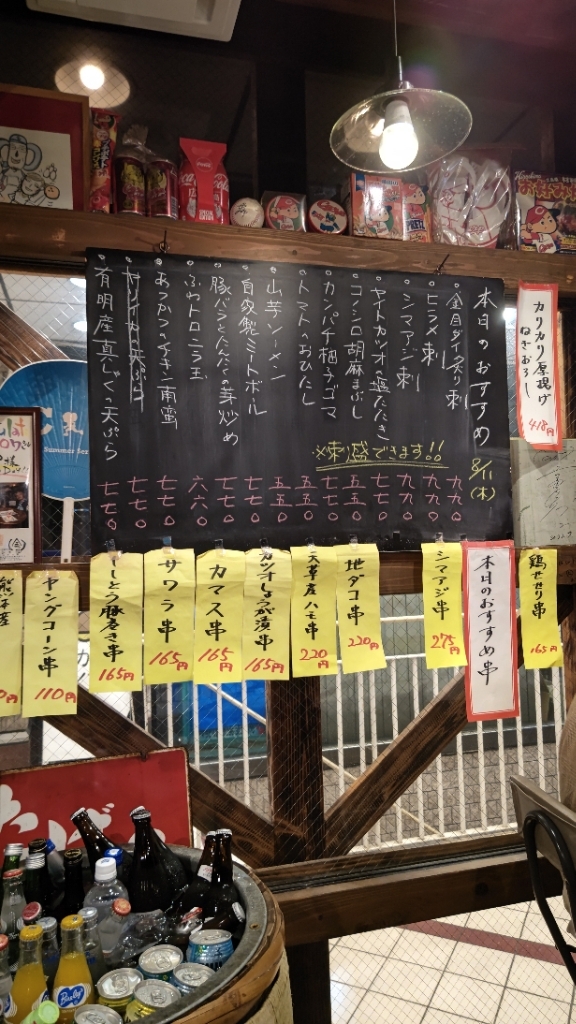 本日のおすすめ 8/11(木)
金目ダイ炙り刺 九九〇
ヒラメ刺 九九〇
シマアジ刺 九九〇
ヤイトカツオの塩たたき 七七〇
コノシロ胡麻まぶし 五五〇
カンパチ柚子ゴマ 七七〇
トマトのおひたし 五五〇
山芋ソーメン 五五〇
自家製ミートボール 七七〇
豚バラとにんにくの芽炒め 七七〇
ふわトロニラ玉 六六〇
あつかつのチキン南蛮 七七〇
七七〇
有明産真じゃくの天ぷら 七七〇
※刺盛できます!!
カリカリ厚揚げ
ねぎおろし
418円
鶏せせり串
165円
本日のおすすめ串
シマアジ串
275円
地ダコ串
220円
天草産ハモ串
220円
カツオしょうが漬串
165円
カマス串
165円
サワラ串
165円
ししとう豚巻き串
165円
ヤングコーン串
110円
たばこ